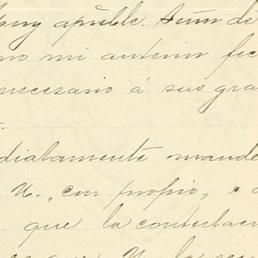 muy apreble. Señor de
mo mi anterior fec
necesario á sus gra
diatamente mande
U., con propio, á
que la contestaci